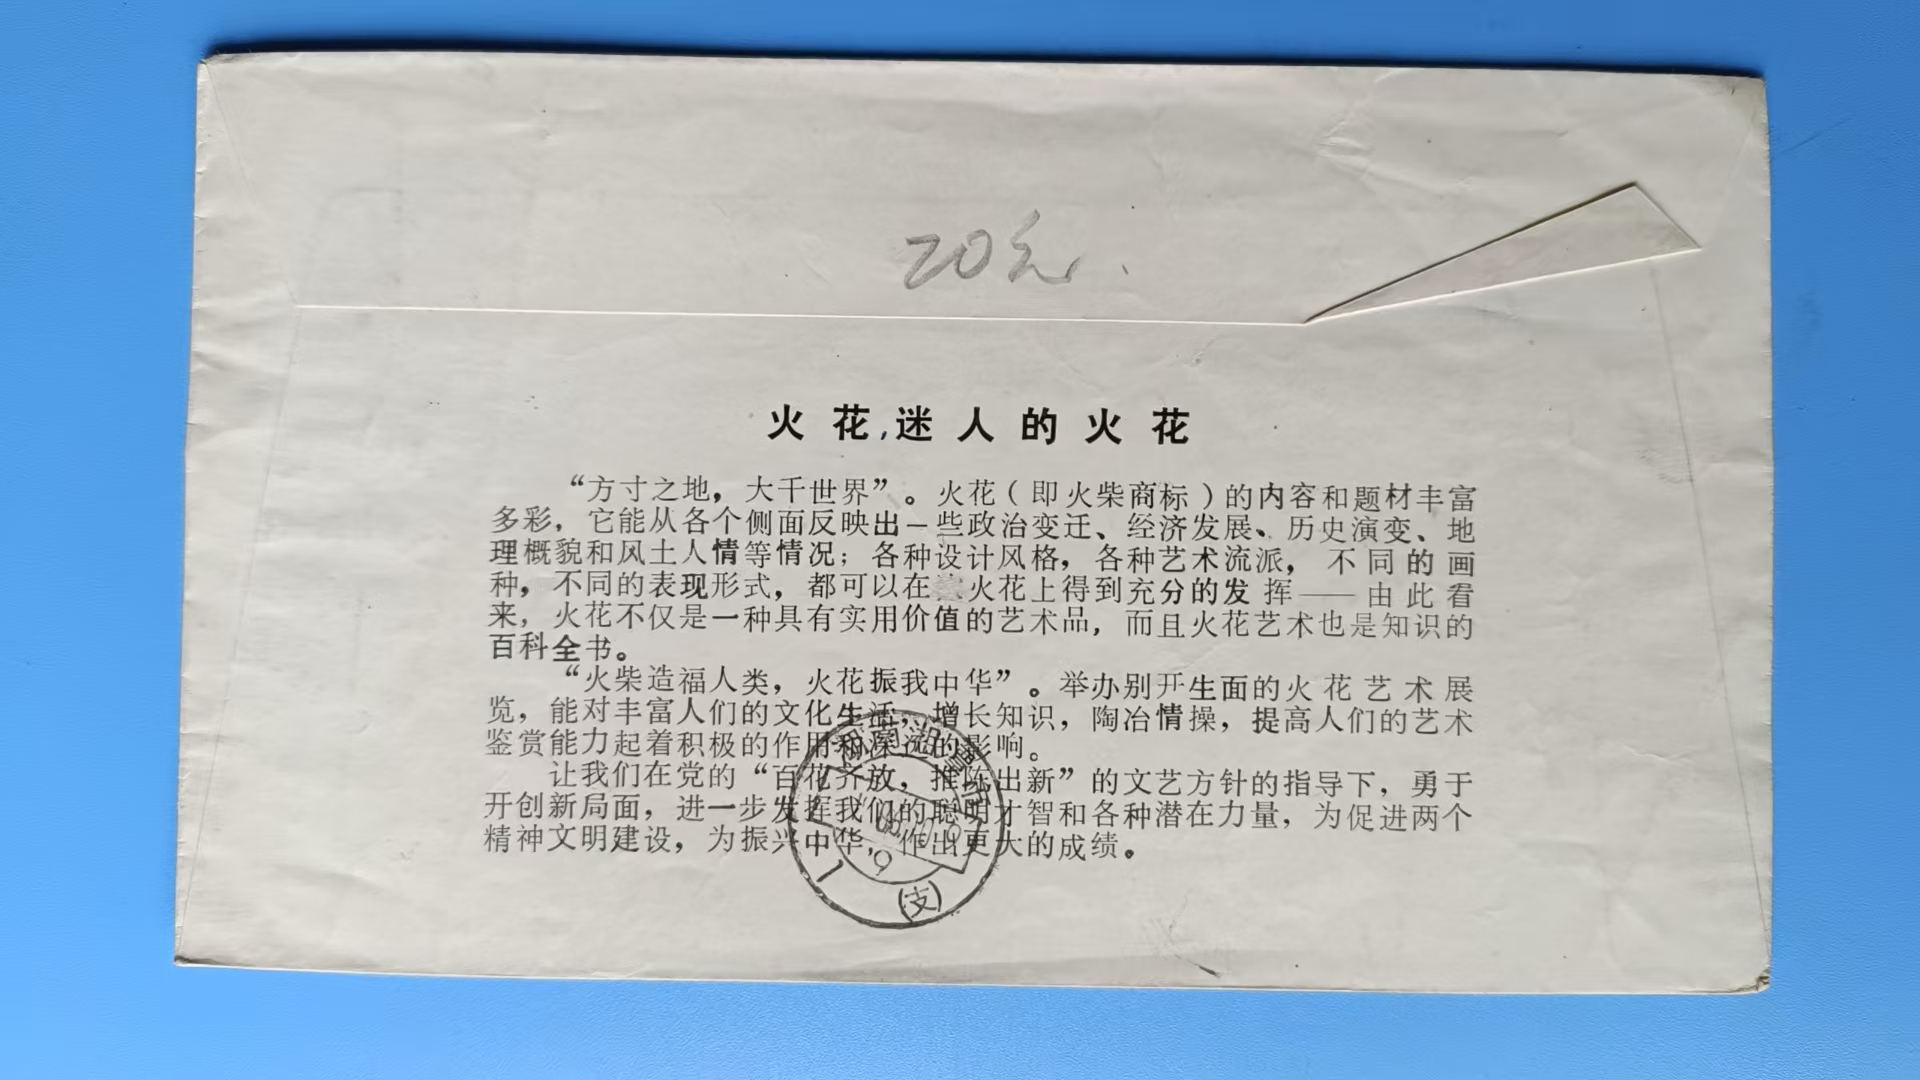 20元.
火花,迷人的火花
“方寸之地，大千世界”。火花(即火柴商标)的内容和题材丰富
多彩，它能从各个侧面反映出一些政治变迁、经济发展、历史演变、地
理概貌和风土人情等情况；各种设计风格，各种艺术流派，不同的画
种，不同的表现形式，都可以在火花上得到充分的发挥——由此看
来，火花不仅是一种具有实用价值的艺术品，而且火花艺术也是知识的
百科全书。
“火柴造福人类，火花振我中华”。举办别开生面的火花艺术展
览，能对丰富人们的文化生活，增长知识，陶冶情操，提高人们的艺术
鉴赏能力起着积极的作用和深远的影响。
让我们在党的“百花齐放，推陈出新”的文艺方针的指导下，勇于
开创新局面，进一步发挥我们的聪明才智和各种潜在力量，为促进两个
精神文明建设，为振兴中华，作出更大的成绩。
湖南湘潭
1
(支)